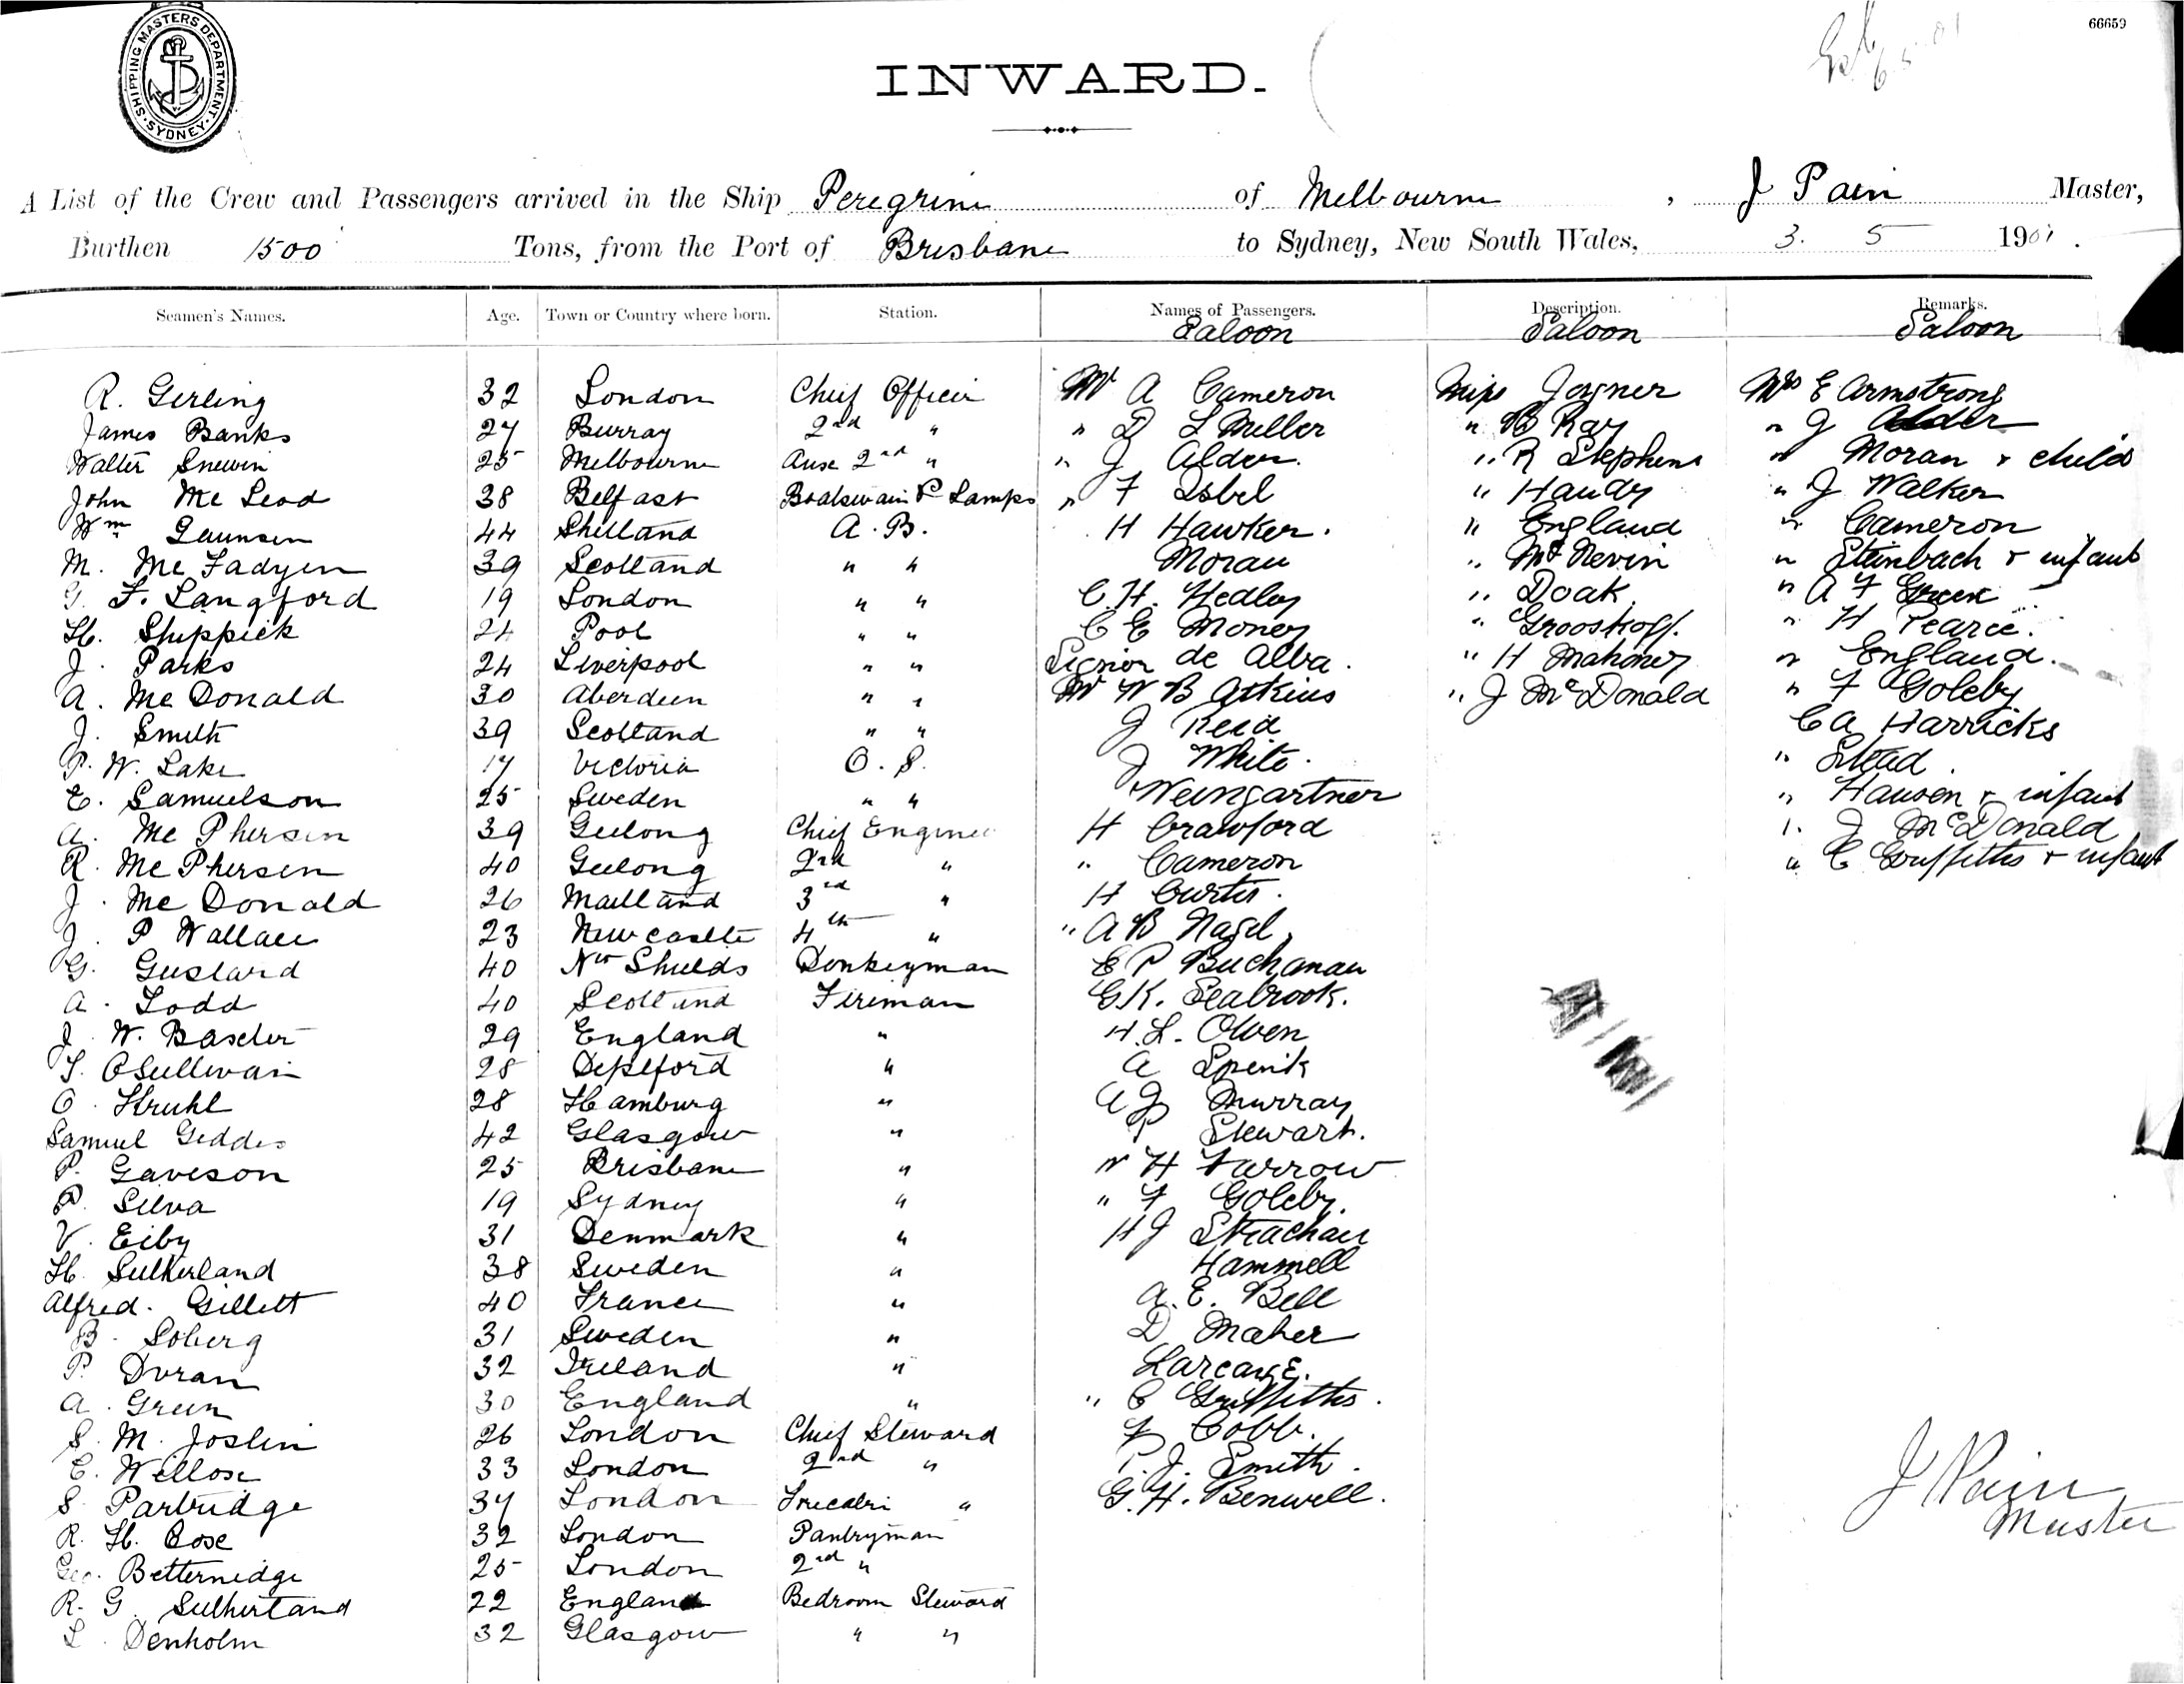 SHIPPING MASTERS DEPARTMENT. SYDNEY.
66659
INWARD.
A List of the Crew and Passengers arrived in the Ship Peregrine of Melbourne , J Pain Master,
Burthen 1500 Tons, from the Port of Brisbane to Sydney, New South Wales, 3. 5 1901.
Seamen's Names. Age. Town or Country where born. Station. Names of Passengers. Description. Remarks.
Saloon Saloon Saloon
R. Gerling 32 London Chief Officer Mr A Cameron Miss Joyner Mrs E Armstrong
James Banks 27 Burray 2nd " " D L Miller " B Ray " J Alder
Walter Snewin 25 Melbourne Aux 2nd " " J Alder. " R Stephens " Moran & child
John Mc Leod 38 Belfast Boatswain & Lamps " F Isbel " Handy " J Walker
Wm Gaunsen 44 Shetland A.B. H Hawker. " England " Cameron
M. Mc Fadyen 39 Scotland " " Moran " McNevin " Steinbach & infant
G. F. Langford 19 London " " C.H. Hedley " Doak. " A F Green
H. Shippick 24 Pool " " C E Money " Grooskopf. " H Pearce.
J. Parks 24 Liverpool " " Signior de Alba. " H Mahoney " England.
A. Mc Donald 30 Aberdeen " " Mr W B Atkins " J McDonald " F Goleby
J. Smith 39 Scotland " " J Reid CA Harricks
P. W. Lake 17 Victoria O.S. J White. " Stead.
E. Samuelson 25 Sweden " " Weingartner " Hansen & infant
A. Mc Phersen 39 Geelong Chief Engineer H Crawford " J McDonald
R. Mc Phersen 40 Geelong 2nd " " Cameron " C Griffiths & infant
J. Mc Donald 26 Maitland 3rd " H Curtis.
J. P Wallace 23 Newcastle 4th " " A B Nagel.
G. Gustard 40 Nth Shields Donkeyman E P Buchanan
A. Todd 40 Scotland Fireman G.K. Seabrook.
J. W. Baxter 29 England " H.L. Olven
T. OSullivan 28 Deptford " A Spink
O. Struhl 28 Hamburg " A J Murray
Samuel Geddes 42 Glasgow " P Stewart.
P. Gaveson 25 Brisbane " " H Farrow
P. Silva 19 Sydney " " F Goleby.
V. Eiby 31 Denmark " H J Strachan
H. Sutherland 38 Sweden " Hammell
Alfred. Gillett 40 France " A.E. Bell
B. Soberg 31 Sweden " D Maher
P. Doran 32 Ireland "
A. Green 30 England " " C Griffiths.
S. M. Joslin 26 London Chief Steward Cobb.
E. Willose 33 London 2nd " P.J. Smith.
S. Partridge 37 London Forecabin " G.H. Benwell.
R. H. Cose 32 London Pantryman
Geo. Betternidge 25 London 2nd "
R. G. Sutherland 22 England Bedroom Steward
L. Denholm 32 Glasgow " "
J Pain
Master